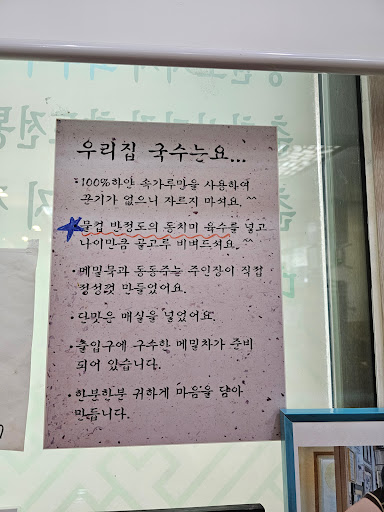 우리집 국수는요...
• 100%하얀 속가루만을 사용하여
끈기가 없으니 자르지 마셔요. ^^
★물컵 반정도의 동치미 육수를 넣고
나이만큼 골고루 비벼드셔요. ^^
• 메밀묵과 동동주는 주인장이 직접
정성껏 만들었어요.
• 단맛은 매실을 넣었어요.
• 출입구에 구수한 메밀차가 준비
되어 있습니다.
• 한분한분 귀하게 마음을 담아
만듭니다.